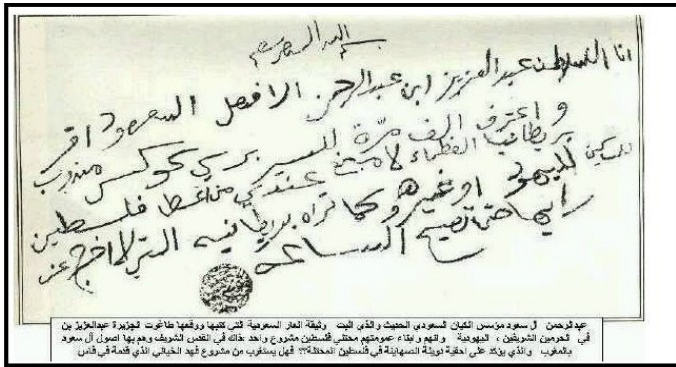 بسم الله الرحمن الرحيم
انا السلطان عبد العزيز ابن عبد الرحمن الفيصل السعود اقر
واعترف الف مرة للسير برسي كوكس مندوب
بريطانيا العظماء لا منع عندي من اعطا فلسطين
للمساكين لليهود او غيرهم وكما تراه بريطانيه التي لا اخرج عن
رايها حتى تصيح الساعه
عبدالرحمن آل سعود مؤسس الكيان السعودي الحديث والذي البت وثيقة العار السعودية التي كتبها ووقعها طاغوت الجزيرة عبدالعزيز بن
في الحرمين الشريفين ، اليهودية وانهم وابناء عمومتهم محتلي فلسطين مشروع واحد في القدس الشريف وهم بها اصول آل سعود
بالمغرب والذي يؤكد على احقية دويلة الصهاينة في فلسطين المحتلة؟؟ فهل يستغرب من مشروع فهد الخياني الذي قدمة في فاس